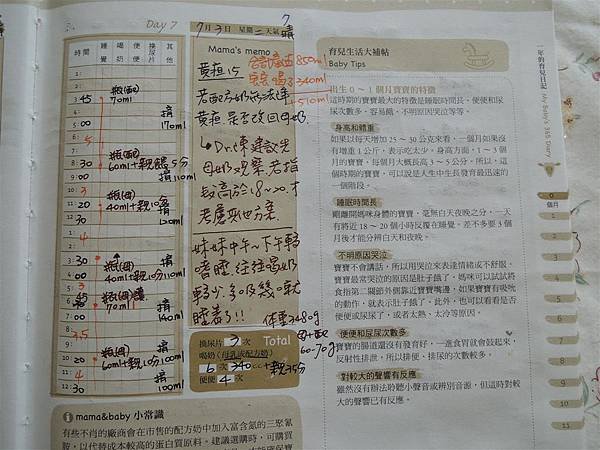 Day 7
7月3日 星期二 天氣 晴
時間 睡覺 喝奶 便便 換尿片 其他
3: 45 瓶(配) 70ml
4:00 擠 170ml
8:30 瓶(母) 60ml+親餵5分
9:00 擠110ml
11:20 瓶(母) 40ml+親10分
12:30 擠 120ml
3:30 瓶(母)
4:00 40ml+親10分 擠 110ml
70ml
擠 140ml
瓶(母)
60ml+親10分 擠 100ml
12:30 擠 100ml
Mama's memo
黃疸15
850ml
340ml
+510ml
若配方奶無法達
黃疸 是否改回母奶
↳Dr.陳建議先
母奶觀察 若指
數高於18~20.才
考慮其他方案
妹妹中午~下午轉
嗜睡 往往喝奶
轉沒多久 就
睡著了!!
體重2480g
換尿片 7 次 Total
喝奶(母乳或配方奶)
6 次 340 cc+親35分
便便 4 次
60-70g
i mama&baby 小常識
有些不肖的廠商會在市售的配方奶中加入富含氮的三聚氰
胺,以代替成本較高的蛋白質原料。建議選購時,可購買
育兒生活大補帖
Baby Tips
出生 0 ~ 1 個月寶寶的特徵
這時期的寶寶最大的特徵是睡眠時間長、便便和尿
尿次數多、容易餓、不明原因哭泣等等。
身高和體重
如果以每天增加 25 ~ 30 公克來看,一個月如果沒
有增重 1 公斤,表示吃太少。身高方面,1 ~ 3 個
月的寶寶,每個月大概長高 3 ~ 5 公分,所以,這
個時期的寶寶,可以說是人生中生長發育最迅速的
一個階段。
睡眠時間長
剛離開媽咪身體的寶寶,毫無白天夜晚之分,一天
有將近 18 ~ 20 個小時反覆在睡覺,差不多要 3 個
月後才能分辨白天和夜晚。
不明原因哭泣
寶寶不會講話,所以用哭泣來表達情緒或不舒服。
寶寶最常哭泣的原因是肚子餓了,媽咪可以試試將
食指第二關節外側靠近寶寶嘴邊,如果寶寶有吸吮
的動作,就表示肚子餓了。此外,也可以看看是否
便便或尿尿了,或者太熱、太冷等原因。
便便和尿尿次數多
寶寶的腸道還沒有發育好,一進食胃就會鼓起來,
反射性排泄,所以排便、排尿的次數較多。
對較大的聲響有反應
雖然沒有辦法聆聽小聲音或辨別音源,但這時對較
大的聲響已有反應。
一年的育兒日記 My Baby's 365 Diary
0 個月
1
2
3
4
5
6
7
8
9
10
11